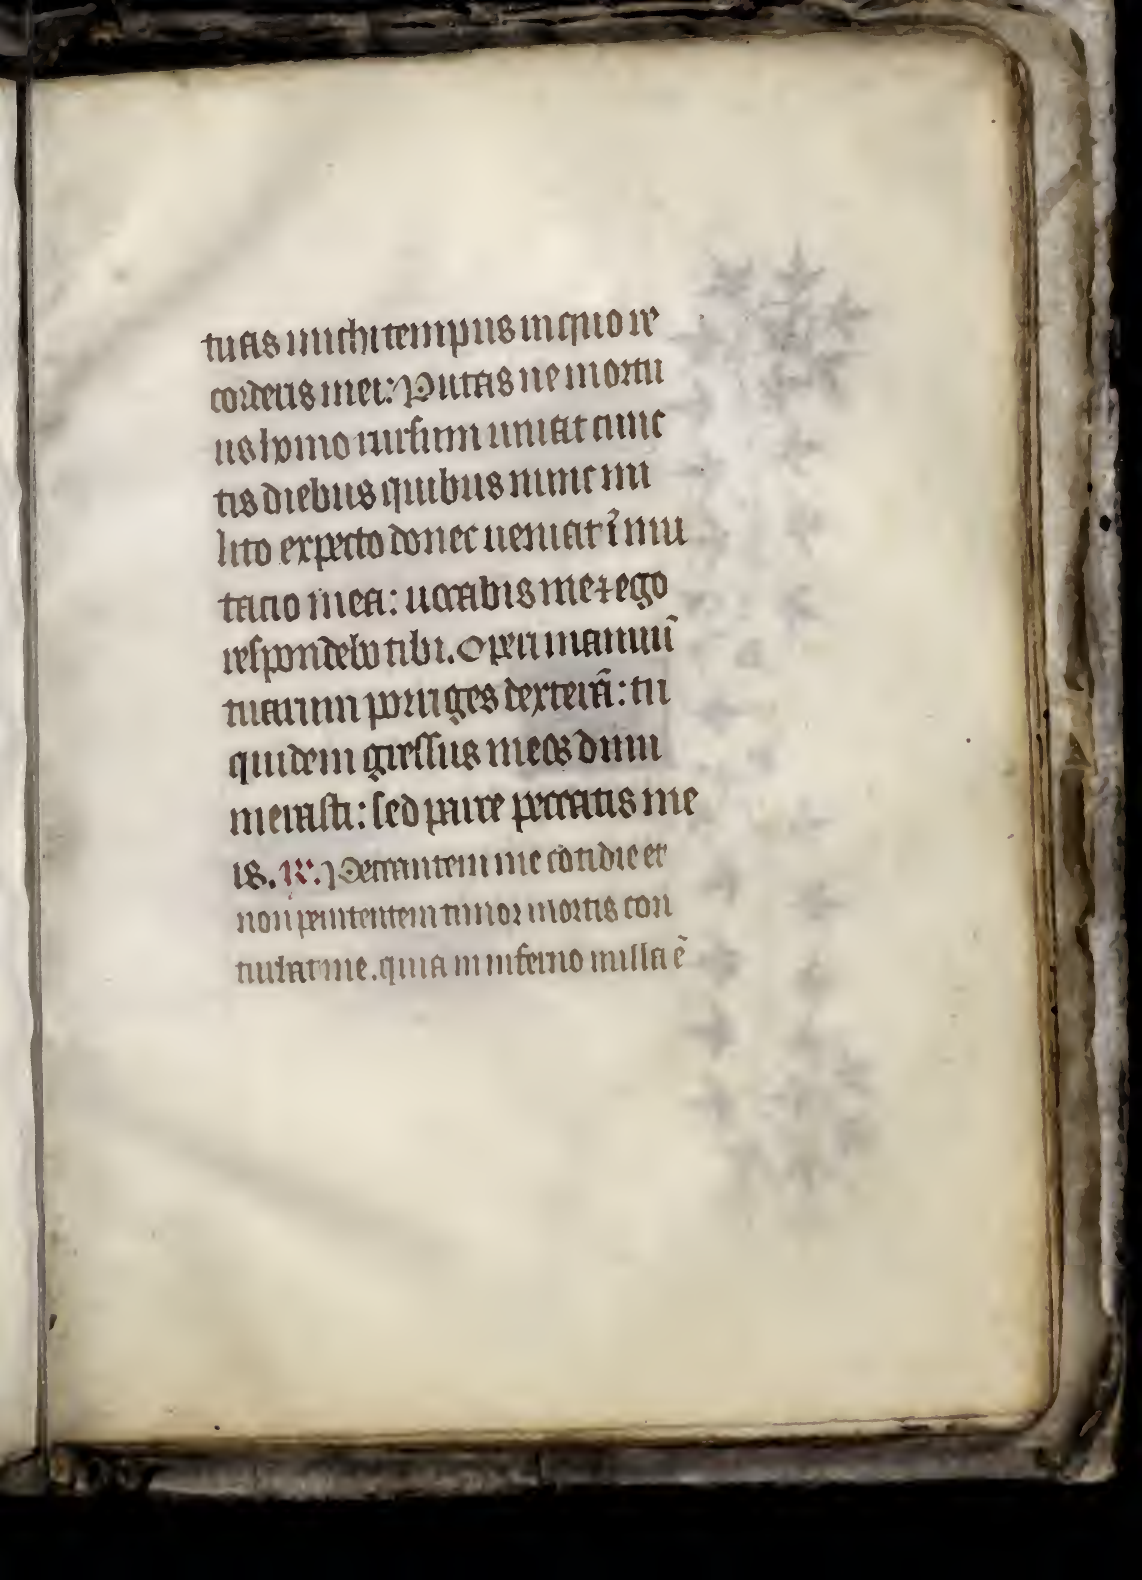 tuas michi tempus in quo re
corderis mei: Putas ne mortu
us homo rursum uiuat cunc
tis diebus quibus nunc mi
lito expecto donec ueniat ĩmu
tatio mea: uocabis me ⁊ ego
respondebo tibi. Operi manuũ
tuarum porriges dexterã: tu
quidem gressus meos dinu
merasti: sed parce peccatis me
is. ℟. Peccantem me cotidie et
non penitentem timor mortis con
turbat me. quia in inferno nulla ẽ